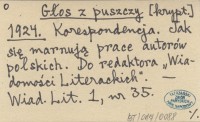 Głos z puszczy [krypt.]
1924. Korespondencja. Jak
się marnują prace autorów
polskich. Do redaktora „Wia-
domości Literackich". —
Wiad. Lit. 1, nr 35.